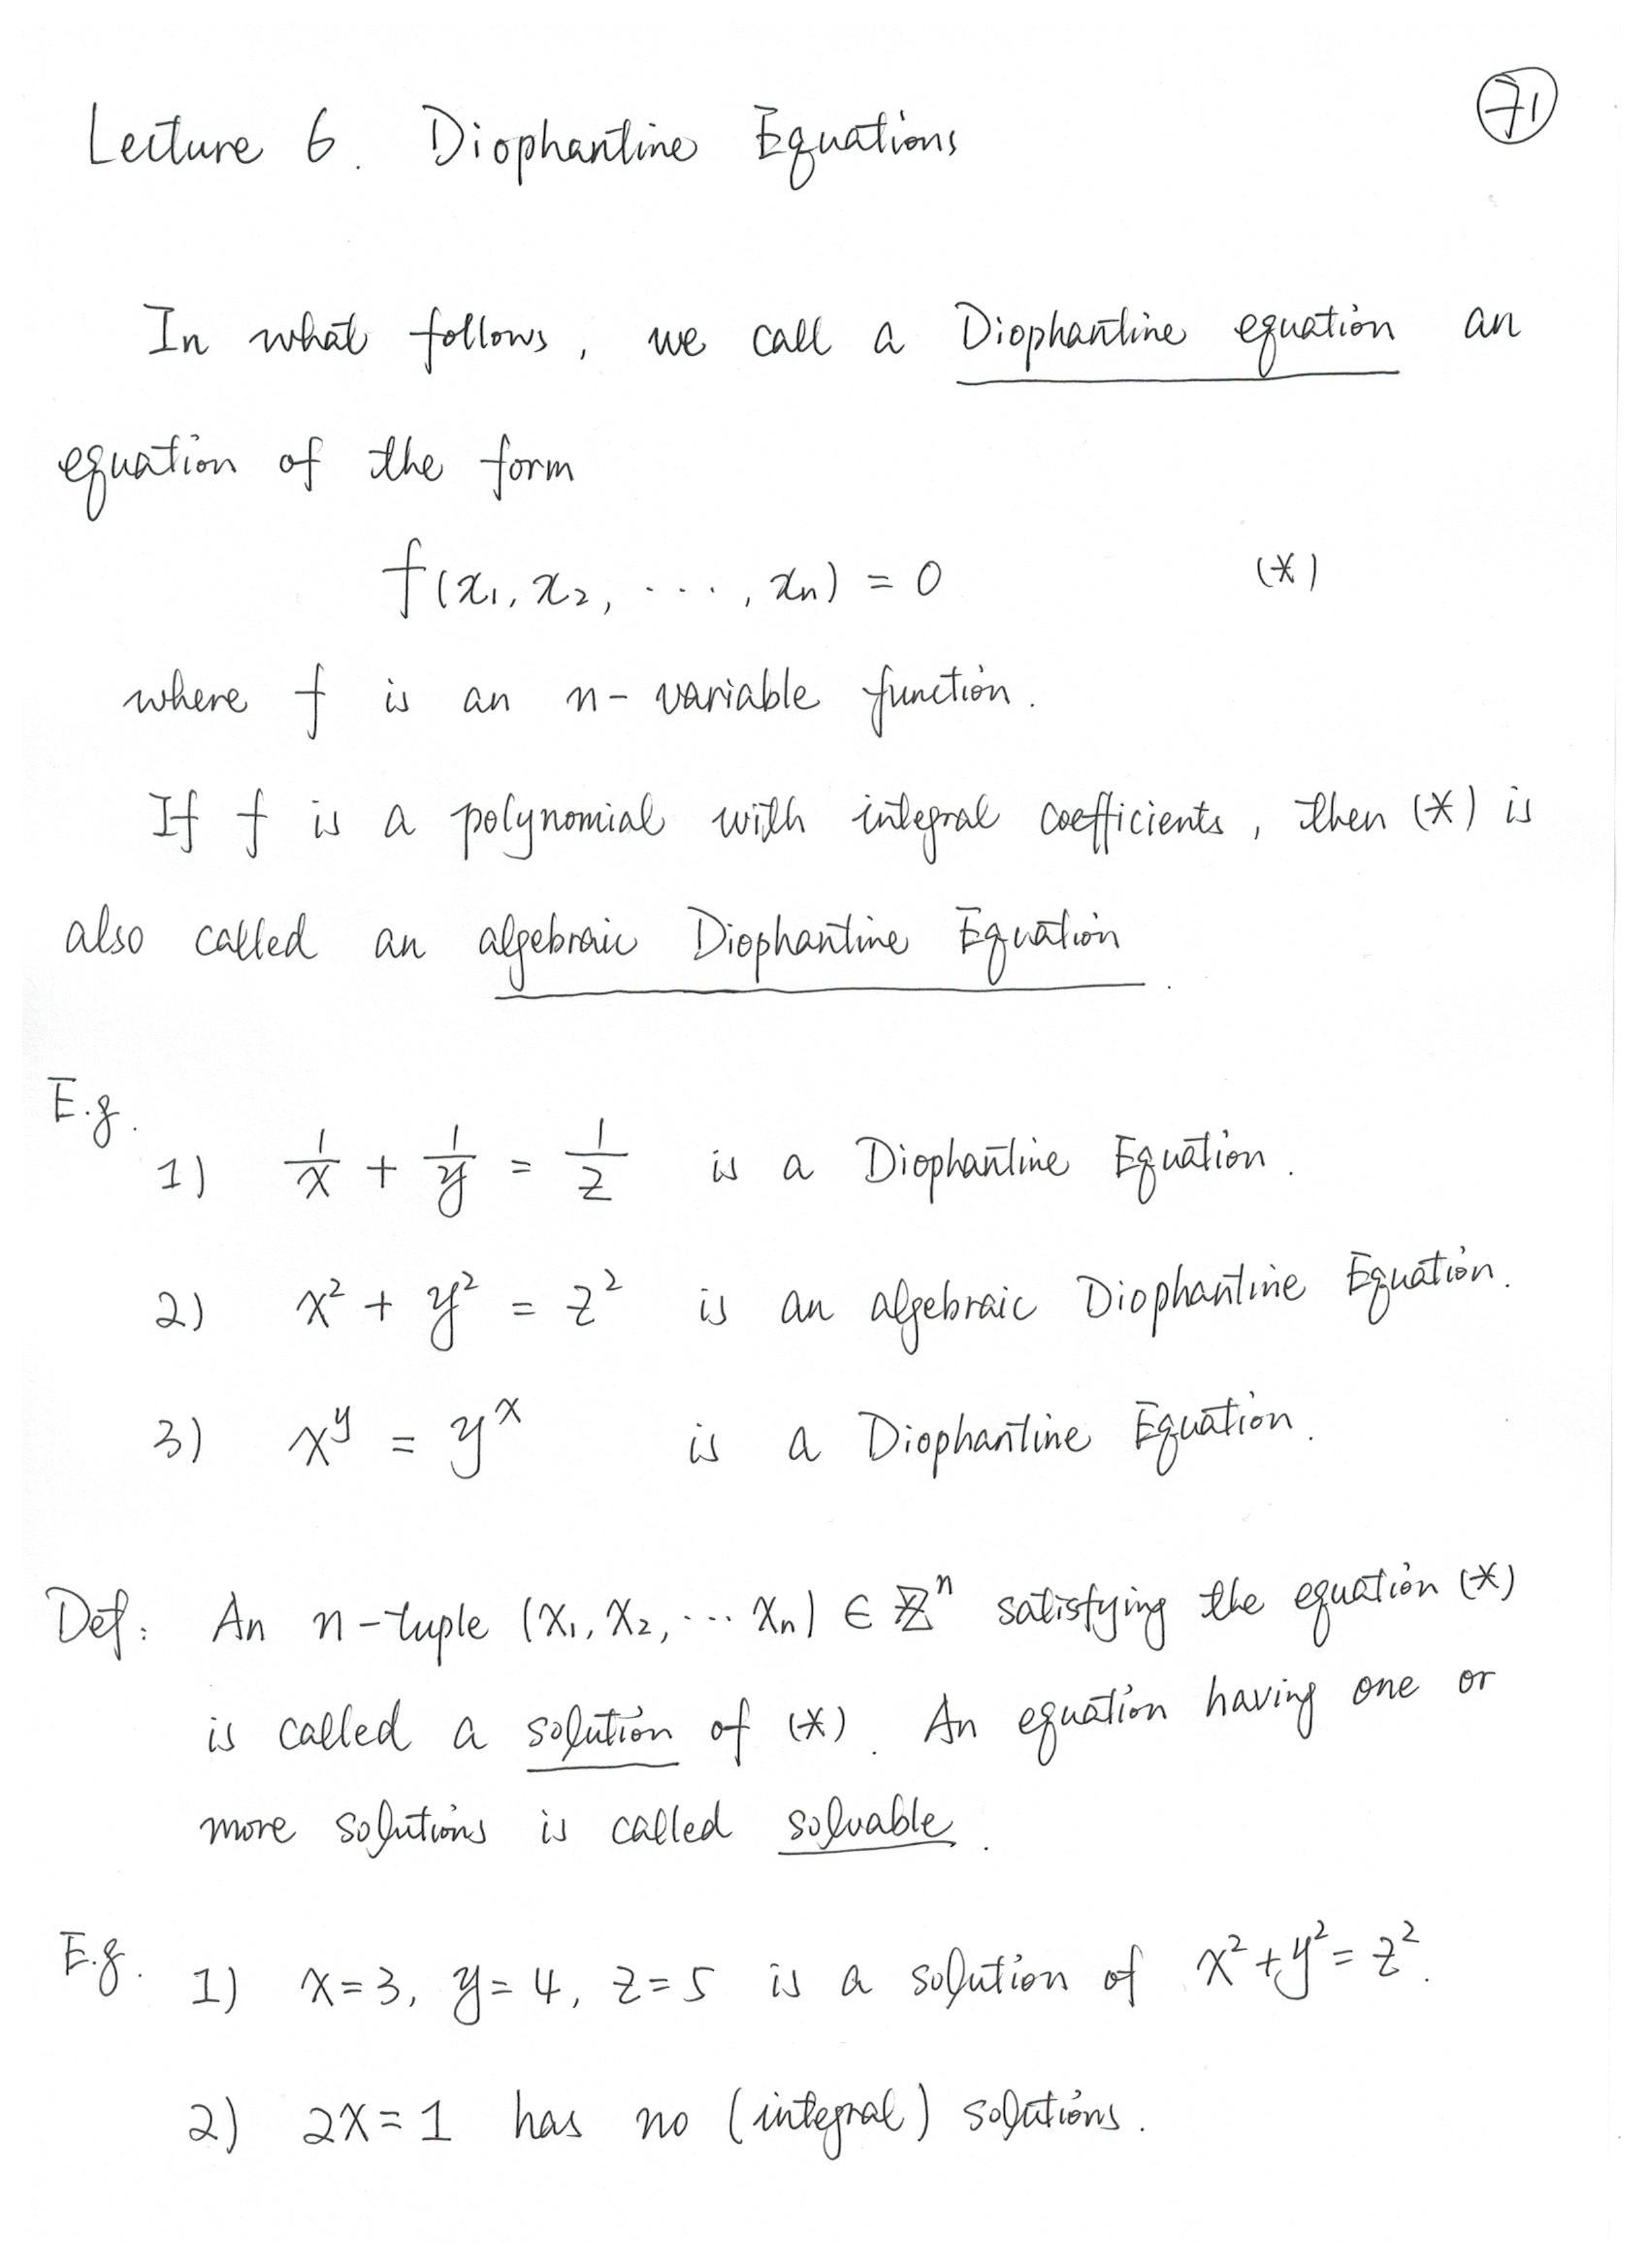 71
Lecture 6. Diophantine Equations
In what follows, we call a Diophantine equation an
equation of the form
f(x₁, x₂, ..., xn) = 0 (*)
where f is an n-variable function.
If f is a polynomial with integral coefficients, then (*) is
also called an algebraic Diophantine Equation.
E.g.
1) 1/x + 1/y = 1/z is a Diophantine Equation.
2) x² + y² = z² is an algebraic Diophantine Equation.
3) x^y = y^x is a Diophantine Equation.
Def: An n-tuple (x₁, x₂, ... xn) ∈ ℤⁿ satisfying the equation (*)
is called a solution of (*). An equation having one or
more solutions is called solvable.
E.g. 1) x=3, y=4, z=5 is a solution of x²+y²=z².
2) 2x=1 has no (integral) solutions.